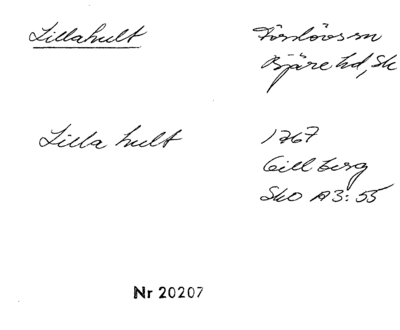 Lillahult
Förslövs sn
Bjäre hd, Sk
Lilla hult
1767
Gillberg
SkO A3:55
Nr 20207